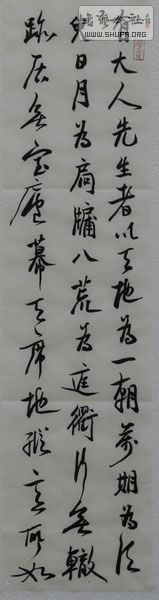 有大人先生者以天地为一朝万期为须
臾日月为扃牖八荒为庭衢行无辙
迹居无室庐幕天席地纵意所如
WWW.SHUFA.ORG